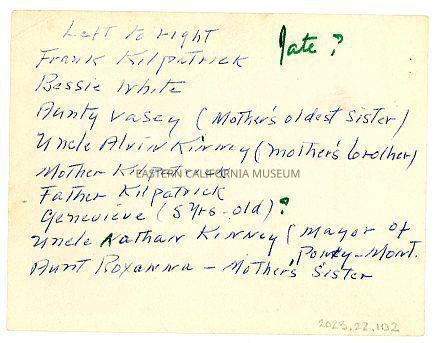 Left to right
Date ?
Frank Kilpatrick
Bessie White
Aunty Vasey (Mother's oldest sister)
Uncle Alvin Kinney (mother's brother)
Mother Kilpatrick
EASTERN CALIFORNIA MUSEUM
Father Kilpatrick
Genevieve (5 yrs-old) ?
Uncle Nathan Kinney (mayor of
Pony-Mont.
Aunt Roxanna - Mother's Sister
2023.22.1102